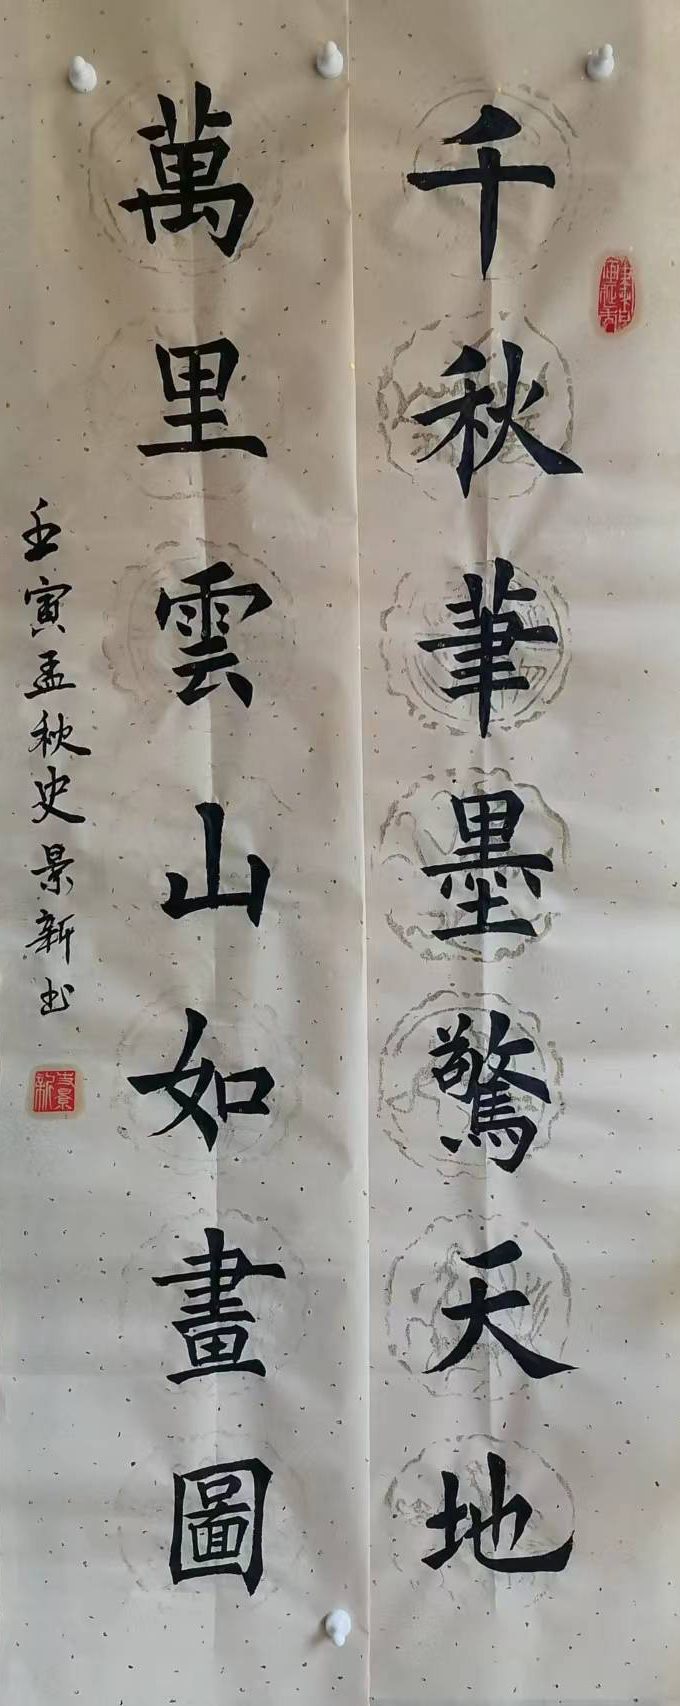 千秋筆墨驚天地
萬里雲山如畫圖
壬寅孟秋史景新书
史景新